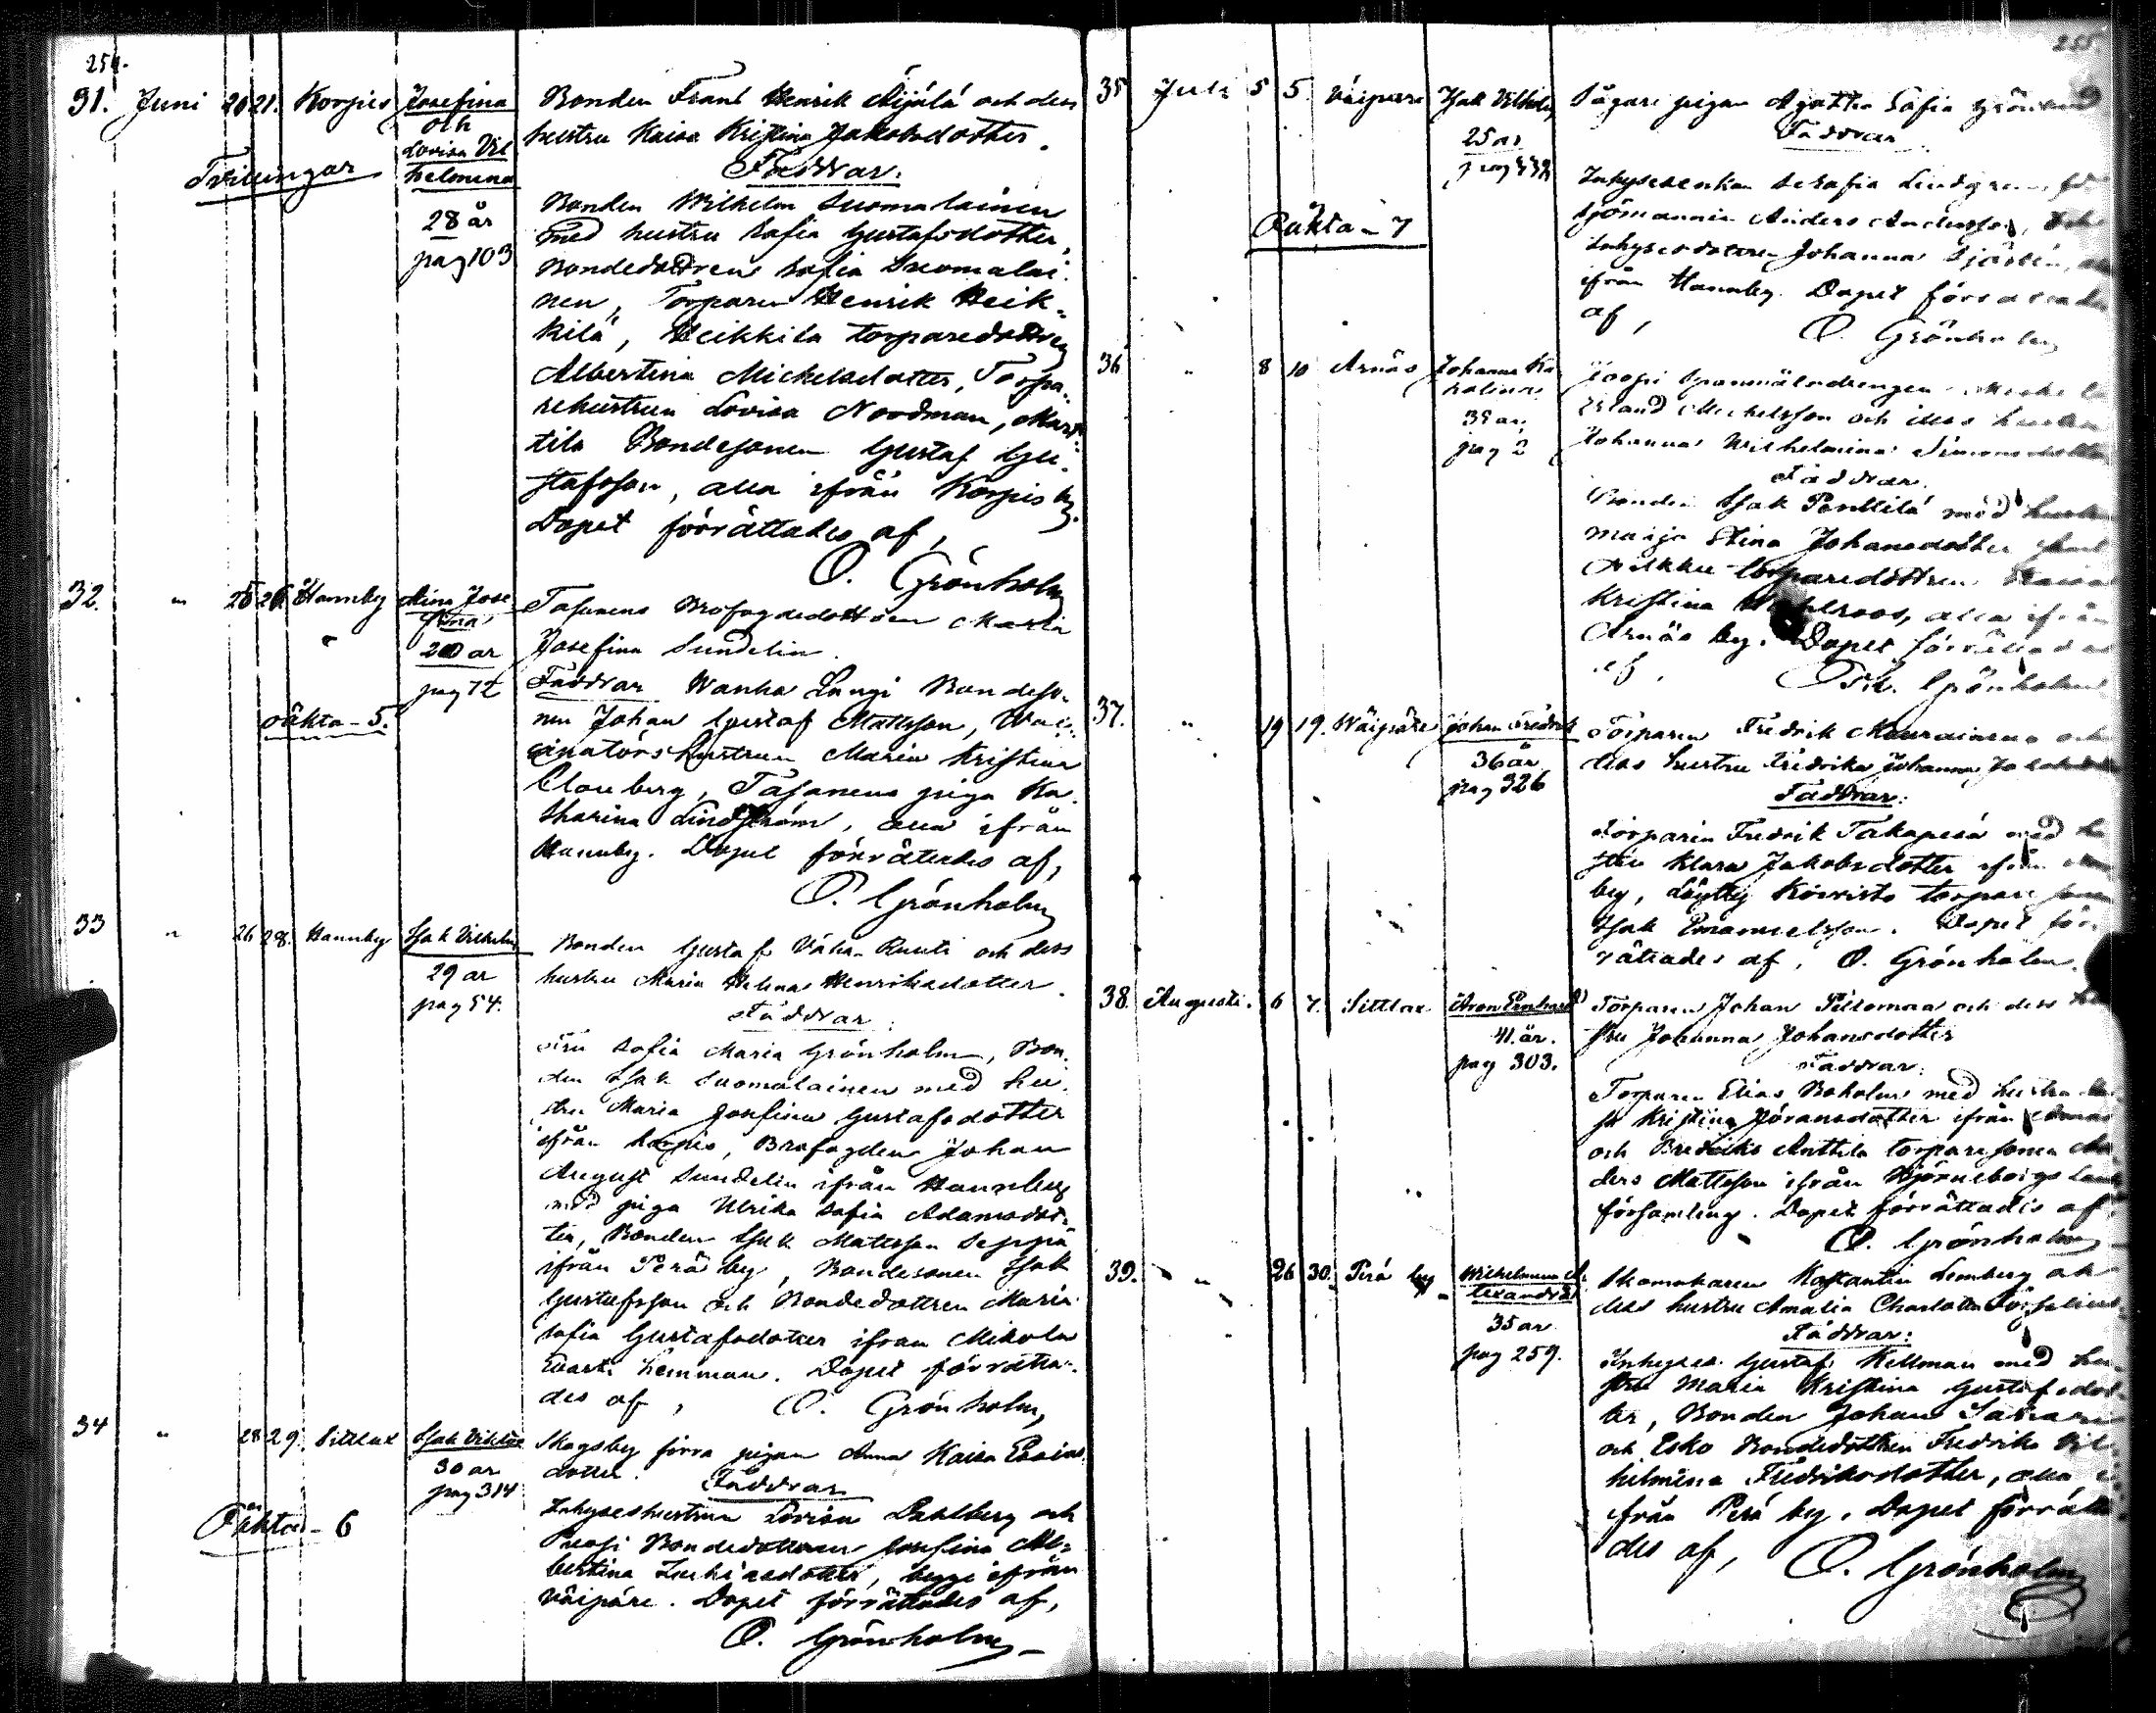 254.
31. Juni 20 21. Korpis Josefina och Lovisa Vilhelmina 28 år pag 103
Tvillingar
Bonden Frans Henrik Äijälä och dess
hustru Kaisa Kristina Jakobsdotter.
Faddrar:
Bonden Wilhelm Suomalainen
med hustru Sofia Gustafsdotter,
Bondedottren Sofia Suomalai-
nen, Torparen Henrik Heik-
kilä, Heikkila torparedottren
Albertina Michelsdotter, Torpa-
rehustrun Lovisa Nordman, Mart-
tila Bondesonen Gustaf Gu-
stafsson, alla ifrån Korpis by.
Dopet förrättades af,
O. Grönholm
32. " 25 26 Hannby Mina Josefina 20 år pag 72
oäkta - 5.
Tasanens Brofogdedottren Maria
Josefina Sundelin.
Faddrar Wanha Langi Bondeso-
nen Johan Gustaf Mattsson, Wac-
cinatörshustrun Maria Kristina
Clouberg, Tasanens piga Ka-
tharina Lindström, alla ifrån
Hannby. Dopet förrättades af,
O. Grönholm
33 " 26 28. Hannby Isak Vilhelm 29 år pag 54.
Bonden Gustaf Vähä-Ruuti och dess
hustru Maria Helena Henriksdotter.
Faddrar:
Fru Sofia Maria Grönholm, Bon-
den Isak Suomalainen med hu-
stru Maria Josefina Gustafsdotter
ifrån Korpis, Brofogden Johan
August Sundelin ifrån Hannby
med piga Ulrika Sofia Adamsdot-
ter, Bonden Isak Mattsson Seppä
ifrån Perä by, Bondesonen Isak
Gustafsson och Bondedottren Maria
Sofia Gustafsdotter ifrån Mikola
hemman. Dopet förrätta-
des af, O. Grönholm,
34 " 28 29. Sittlax Isak Viktor 30 år pag 314
Oäkta - 6
Skogsby förra pigan Anna Kaisa Esaias-
dotter.
Faddrar
Inhyseshustrun Lovisa Dahlberg och
Bondedottren Josefina Al-
bertina dotter, begge ifrån
Väipäre. Dopet förrättades af,
O. Grönholm
255
35 Juli 5 5. Väipäre Isak Vilhelm 25 år
Oäkta - 7
Sågare pigan Agatha Sofia
Faddrar
Inhysesenkan Serafia Lindgren,
sjömannen Anders Andersson,
Inhysesdottren Johanna
ifrån Hannby. Dopet förrättades
af, O. Grönholm
36 " 8 10 Arnäs Johanna Karolina 35 år pag 2
Erland Michelsson och dess hustru
Johanna Wilhelmina Simonsdotter
Faddrar.
Bonden Isak Penttilä med hustru
Maija Stina Johansdotter
torparedottren Kaisa
Kristina alla ifrån
Arnäs by. Dopet förrättades
af, Grönholm
37. " 19 19. Wäipäre Johan Fredrik 36 år pag 326
Torparen Fredrik och
dess hustru Fredrika Johanna
Faddrar:
Torparen Fredrik Takapesä med hu-
stru Klara Jakobsdotter ifrån
by, Löytty Koivisto torpareson
Isak Emanuelsson. Dopet för-
rättades af, O. Grönholm.
38. Augusti. 6 7. Sittlax Aron Bernhard 41 år. pag 303.
Torparen Johan Peltomaa och dess hu-
stru Johanna Johansdotter
Faddrar:
Torparen Elias Boholm med hustru
Kristina Göransdotter ifrån
och Anttila torparesonen An-
ders Mattsson ifrån Björneborgs lands
församling. Dopet förrättades af
O. Grönholm
39. " 26 30. Perä by Wilhelmina Alexandra 35 år pag 259.
Skomakaren Konstantin Lemberg och
dess hustru Amalia Charlotta
Faddrar:
Inhyses. Gustaf Kellman med hu-
stru Maria Kristina Gustafsdot-
ter, Bonden Johan
och Esko Bondedottren Fredrika Vil-
helmina Fredriksdotter, alla
ifrån Perä by. Dopet förrätta-
des af, O. Grönholm